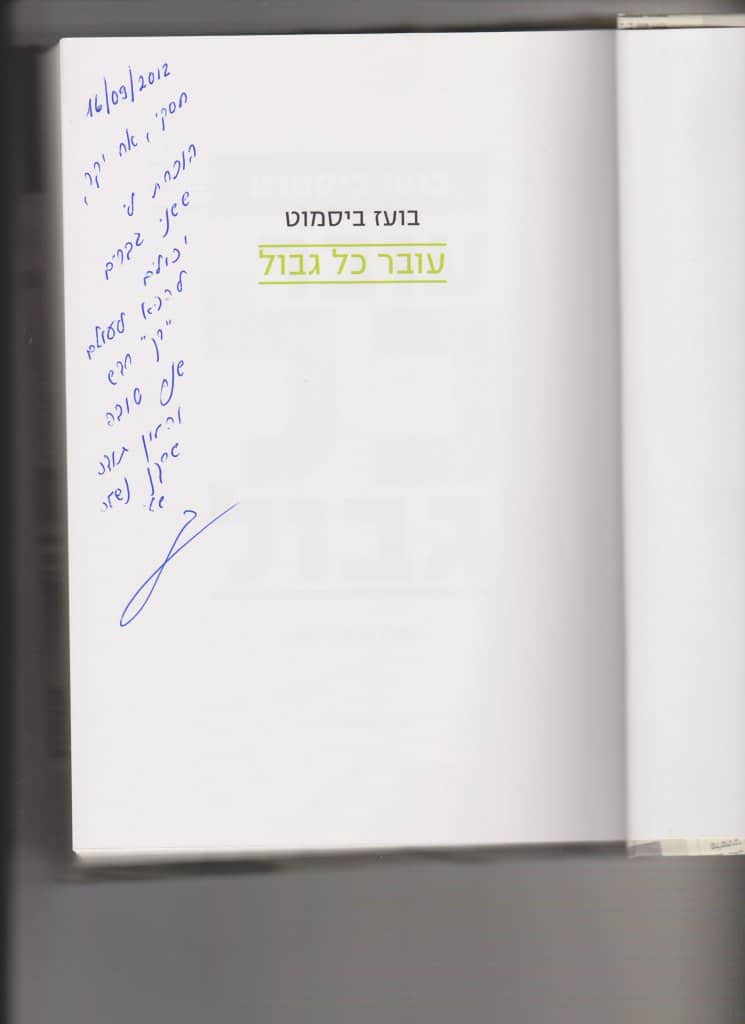 16/09/2012
חסקי, אח יקר,
הוכחת לי
ששני גברים
יכולים
להביא לעולם
"רן" חדש
שנה טובה
והמון תודה
בועז ביסמוט
עובר כל גבול